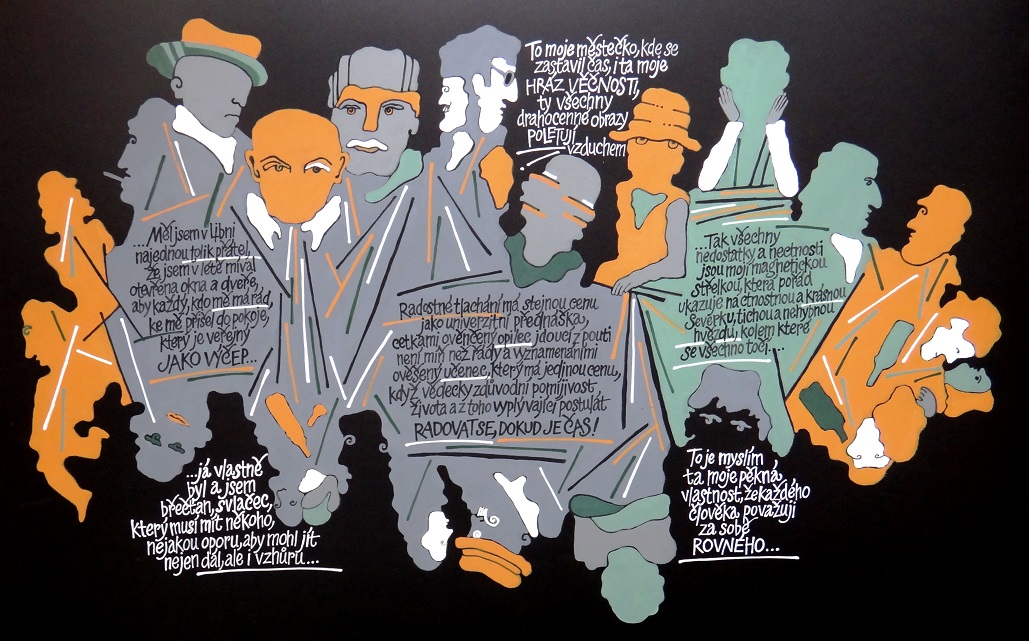 To moje městečko, kde se
zastavil čas, i ta moje
HRÁZ VĚČNOSTI,
ty všechny
drahocenné obrazy
POLETUJÍ
vzduchem
...Měl jsem v Libni
najednou tolik přátel,
že jsem v létě míval
otevřena okna a dveře,
aby každý, kdo mě má rád,
ke mě přišel do pokoje,
který je veřejný
JAKO VÝČEP...
Radostné tlachání má stejnou cenu
jako univerzitní přednáška,
cetkami ověnčený opilec jdoucí z pouti
není míň než řády a vyznamenáními
ověšený učenec, který má jedinou cenu,
když vědecky zdůvodní pomíjivost
života a z toho vyplývající postulát
RADOVAT SE, DOKUD JE ČAS!
...Tak všechny
nedostatky a nectnosti
jsou mojí magnetickou
střelkou, která pořád
ukazuje na ctnostnou a krásnou
Severku, tichou a nehybnou
hvězdu, kolem které
se všechno točí....
...já vlastně
byl a jsem
břečťan, svlačec,
který musí mít někoho,
nějakou oporu, aby mohl jít
nejen dál, ale i vzhůru...
To je myslím
ta moje pěkná
vlastnost, že každého
člověka považuji
za sobě
ROVNÉHO...